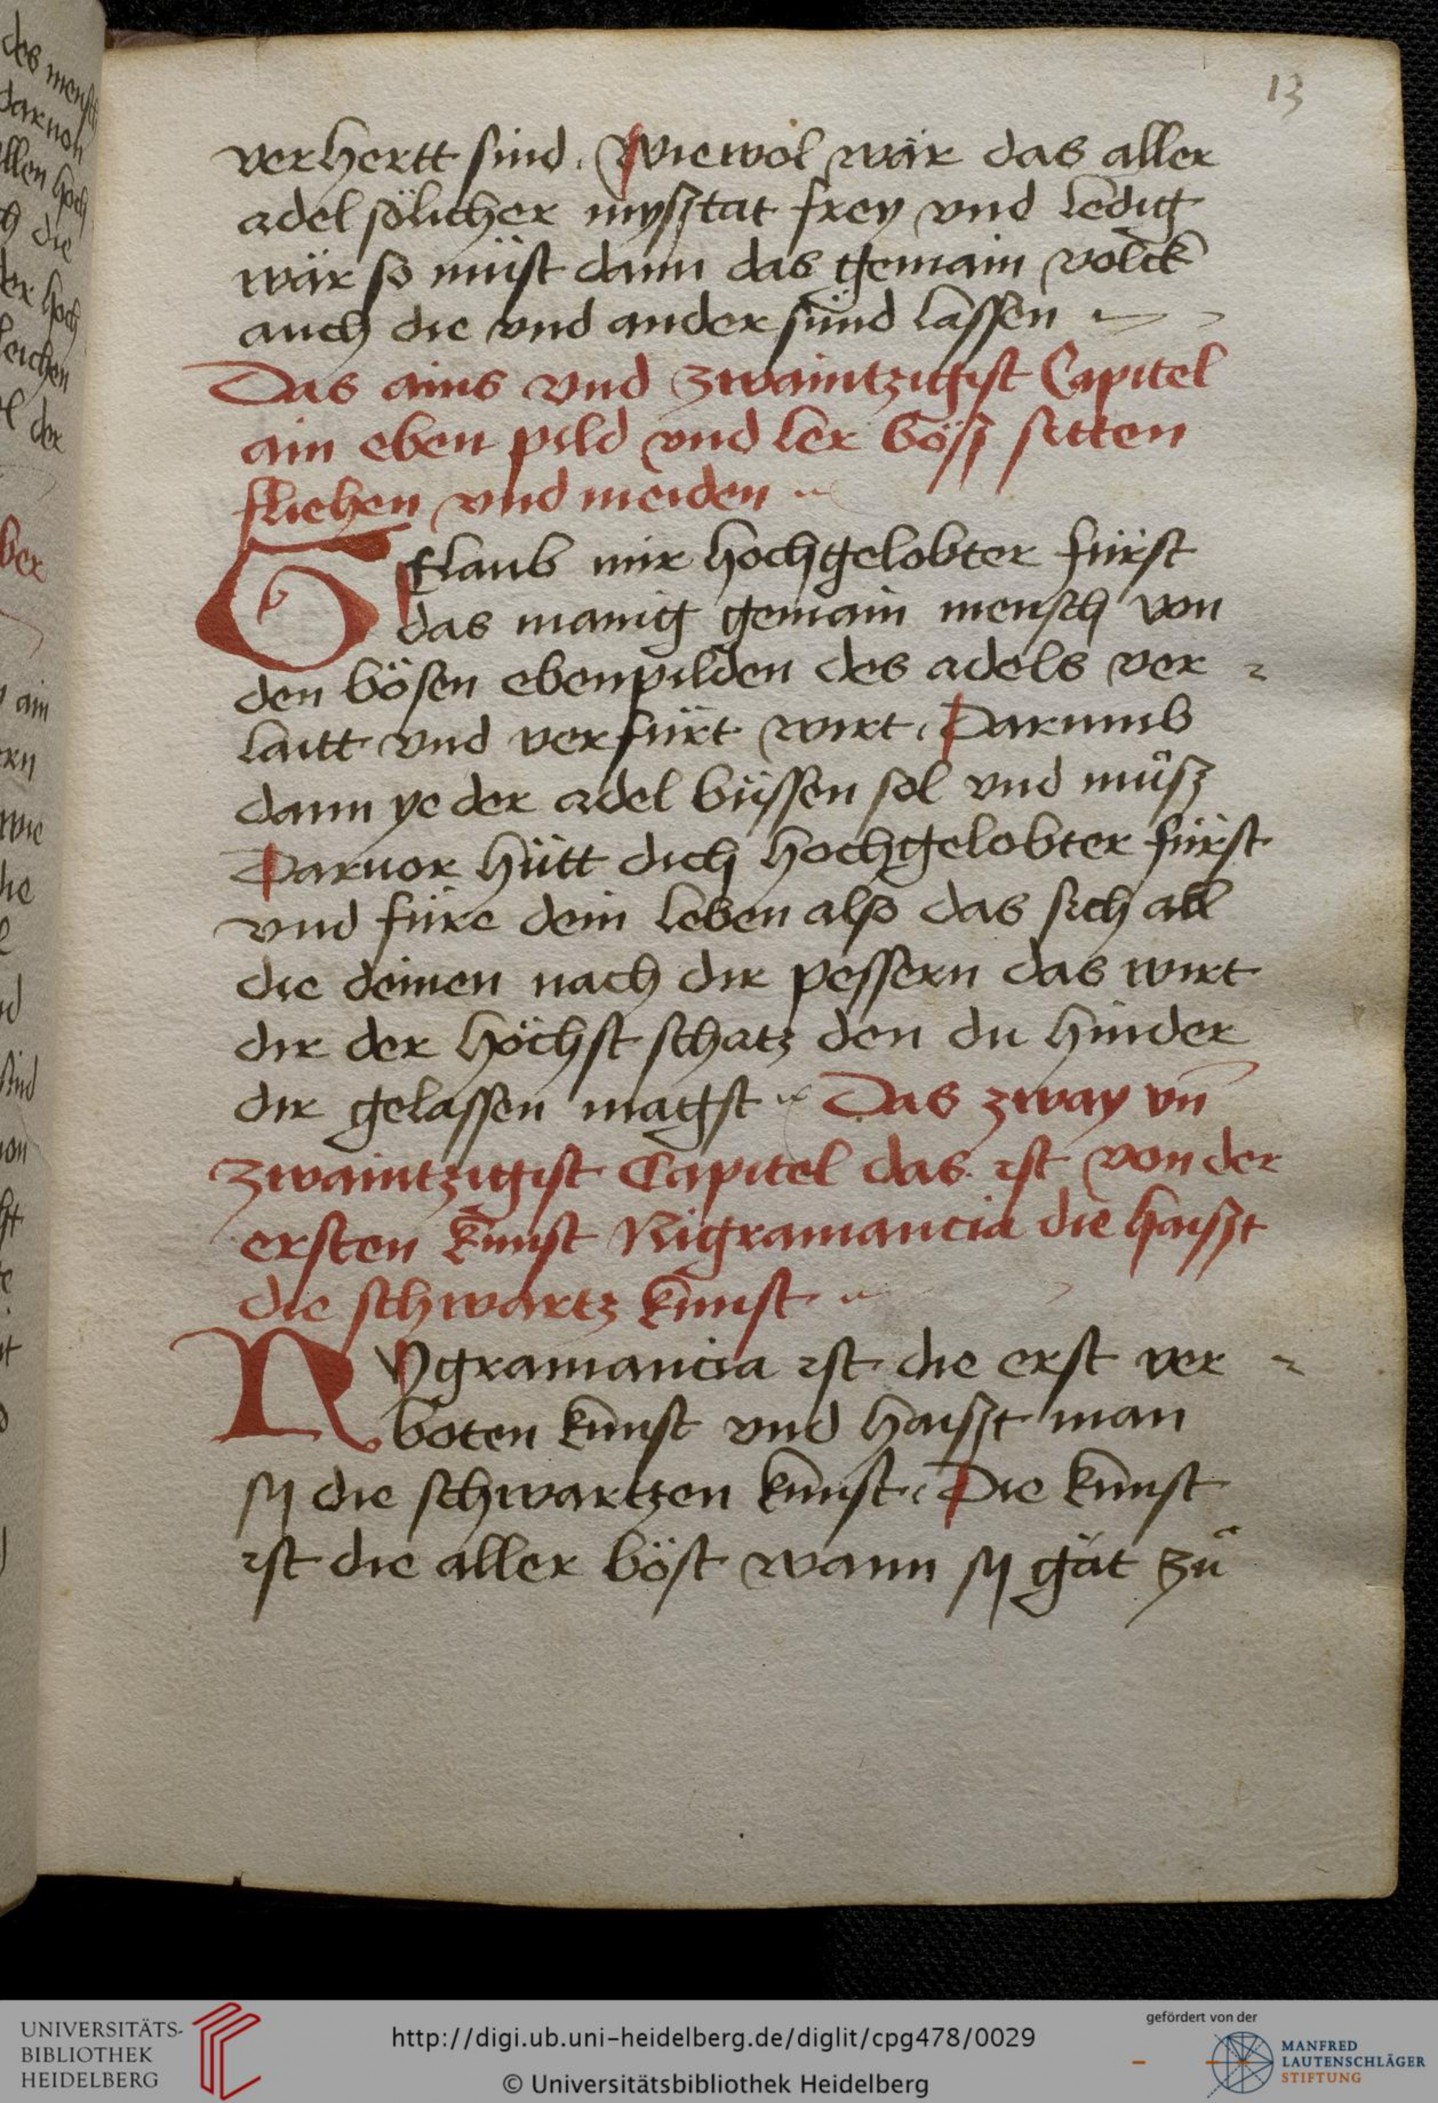 13
verhertt sind. Wiewol wär das aller
adel sölicher mysztat frey vnd ledig
wär so müst dann das gemain volck
auch die vnd ander sünd lassen
Das ains vnd zwaintzigist Capitel
ain eben pild vnd ler bösz sitten
fliehen vnd meiden
Glaub mir hochgelobter fürst
das manig gemain mensch von
den bösen ebenpilden des adels ver
laitt vnd verfürt wirt. Darumb
dann ye der adel büssen sol vnd muͦsz
Daruor hütt dich hochgelobter fürst
vnd füre dein leben also das sich all
die deinen nach dir pessern das wirt
dir der höchst schatz den du hinder
dir gelassen magst Das zway vn̄
zwaintzigist Capitel das ist von der
ersten kunst Nigramancia die haiszt
die schwartz kunst
NYgramancia ist die erst ver
boten kunst vnd haiszt man
sy die schwartzen kunst. Die kunst
ist die aller böst wann sy gät zuͦ
des mensch
darnoh
allen hoch
die
der hoch
leichen
der
ber
ain
wie
die
sind
von
UNIVERSITÄTS-
BIBLIOTHEK
HEIDELBERG
http://digi.ub.uni-heidelberg.de/diglit/cpg478/0029
© Universitätsbibliothek Heidelberg
gefördert von der
MANFRED
LAUTENSCHLÄGER
STIFTUNG